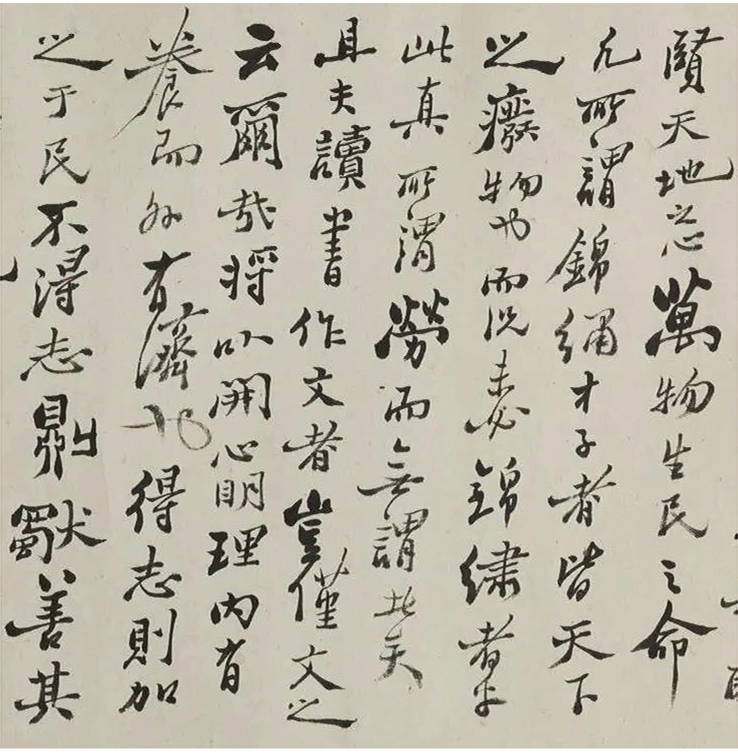 賢天地之心萬物生民之命
凡所謂錦繡才子者皆天下
之癈物也而況未必錦繡者乎
此真所謂勞而無謂者矣
且夫讀書作文者豈僅文之
云爾哉將以開心明理內有
養而外有濟也得志則加
之于民不得志則獨善其